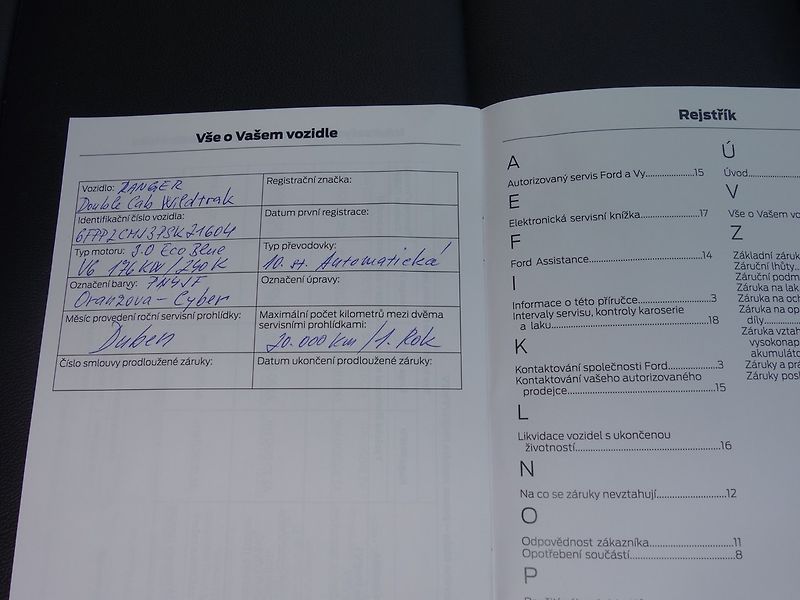 Vše o Vašem vozidle
Vozidlo: RANGER
Double Cab Wildtrak
Registrační značka:
Identifikační číslo vozidla:
Datum první registrace:
Typ motoru: 3.0 Eco Blue
V6 176KW / 240K
Typ převodovky:
10. st. Automatická
Označení barvy:
Oranžova - Cyber
Označení úpravy:
Měsíc provedení roční servisní prohlídky:
Duben
Maximální počet kilometrů mezi dvěma
servisními prohlídkami:
20.000 km / 1. Rok
Číslo smlouvy prodloužené záruky:
Datum ukončení prodloužené záruky:
Rejstřík
A
Autorizovaný servis Ford a Vy...................15
E
Elektronická servisní knížka......................17
F
Ford Assistance..........................................14
I
Informace o této příručce...........................3
Intervaly servisu, kontroly karoserie
a laku.......................................................18
K
Kontaktování společnosti Ford..................3
Kontaktování vašeho autorizovaného
prodejce..................................................15
L
Likvidace vozidel s ukončenou
životností..................................................16
N
Na co se záruky nevztahují........................12
O
Odpovědnost zákazníka..............................11
Opotřebení součástí....................................8
P
Ú
Úvod
V
Vše o Vašem
Z
Základní záruk
Záruční lhůty
Záruční podm
Záruka na lak
Záruka na
Záruka na
díly
Záruka vztah
vysokonap
akumuláto
Záruky a
Záruky